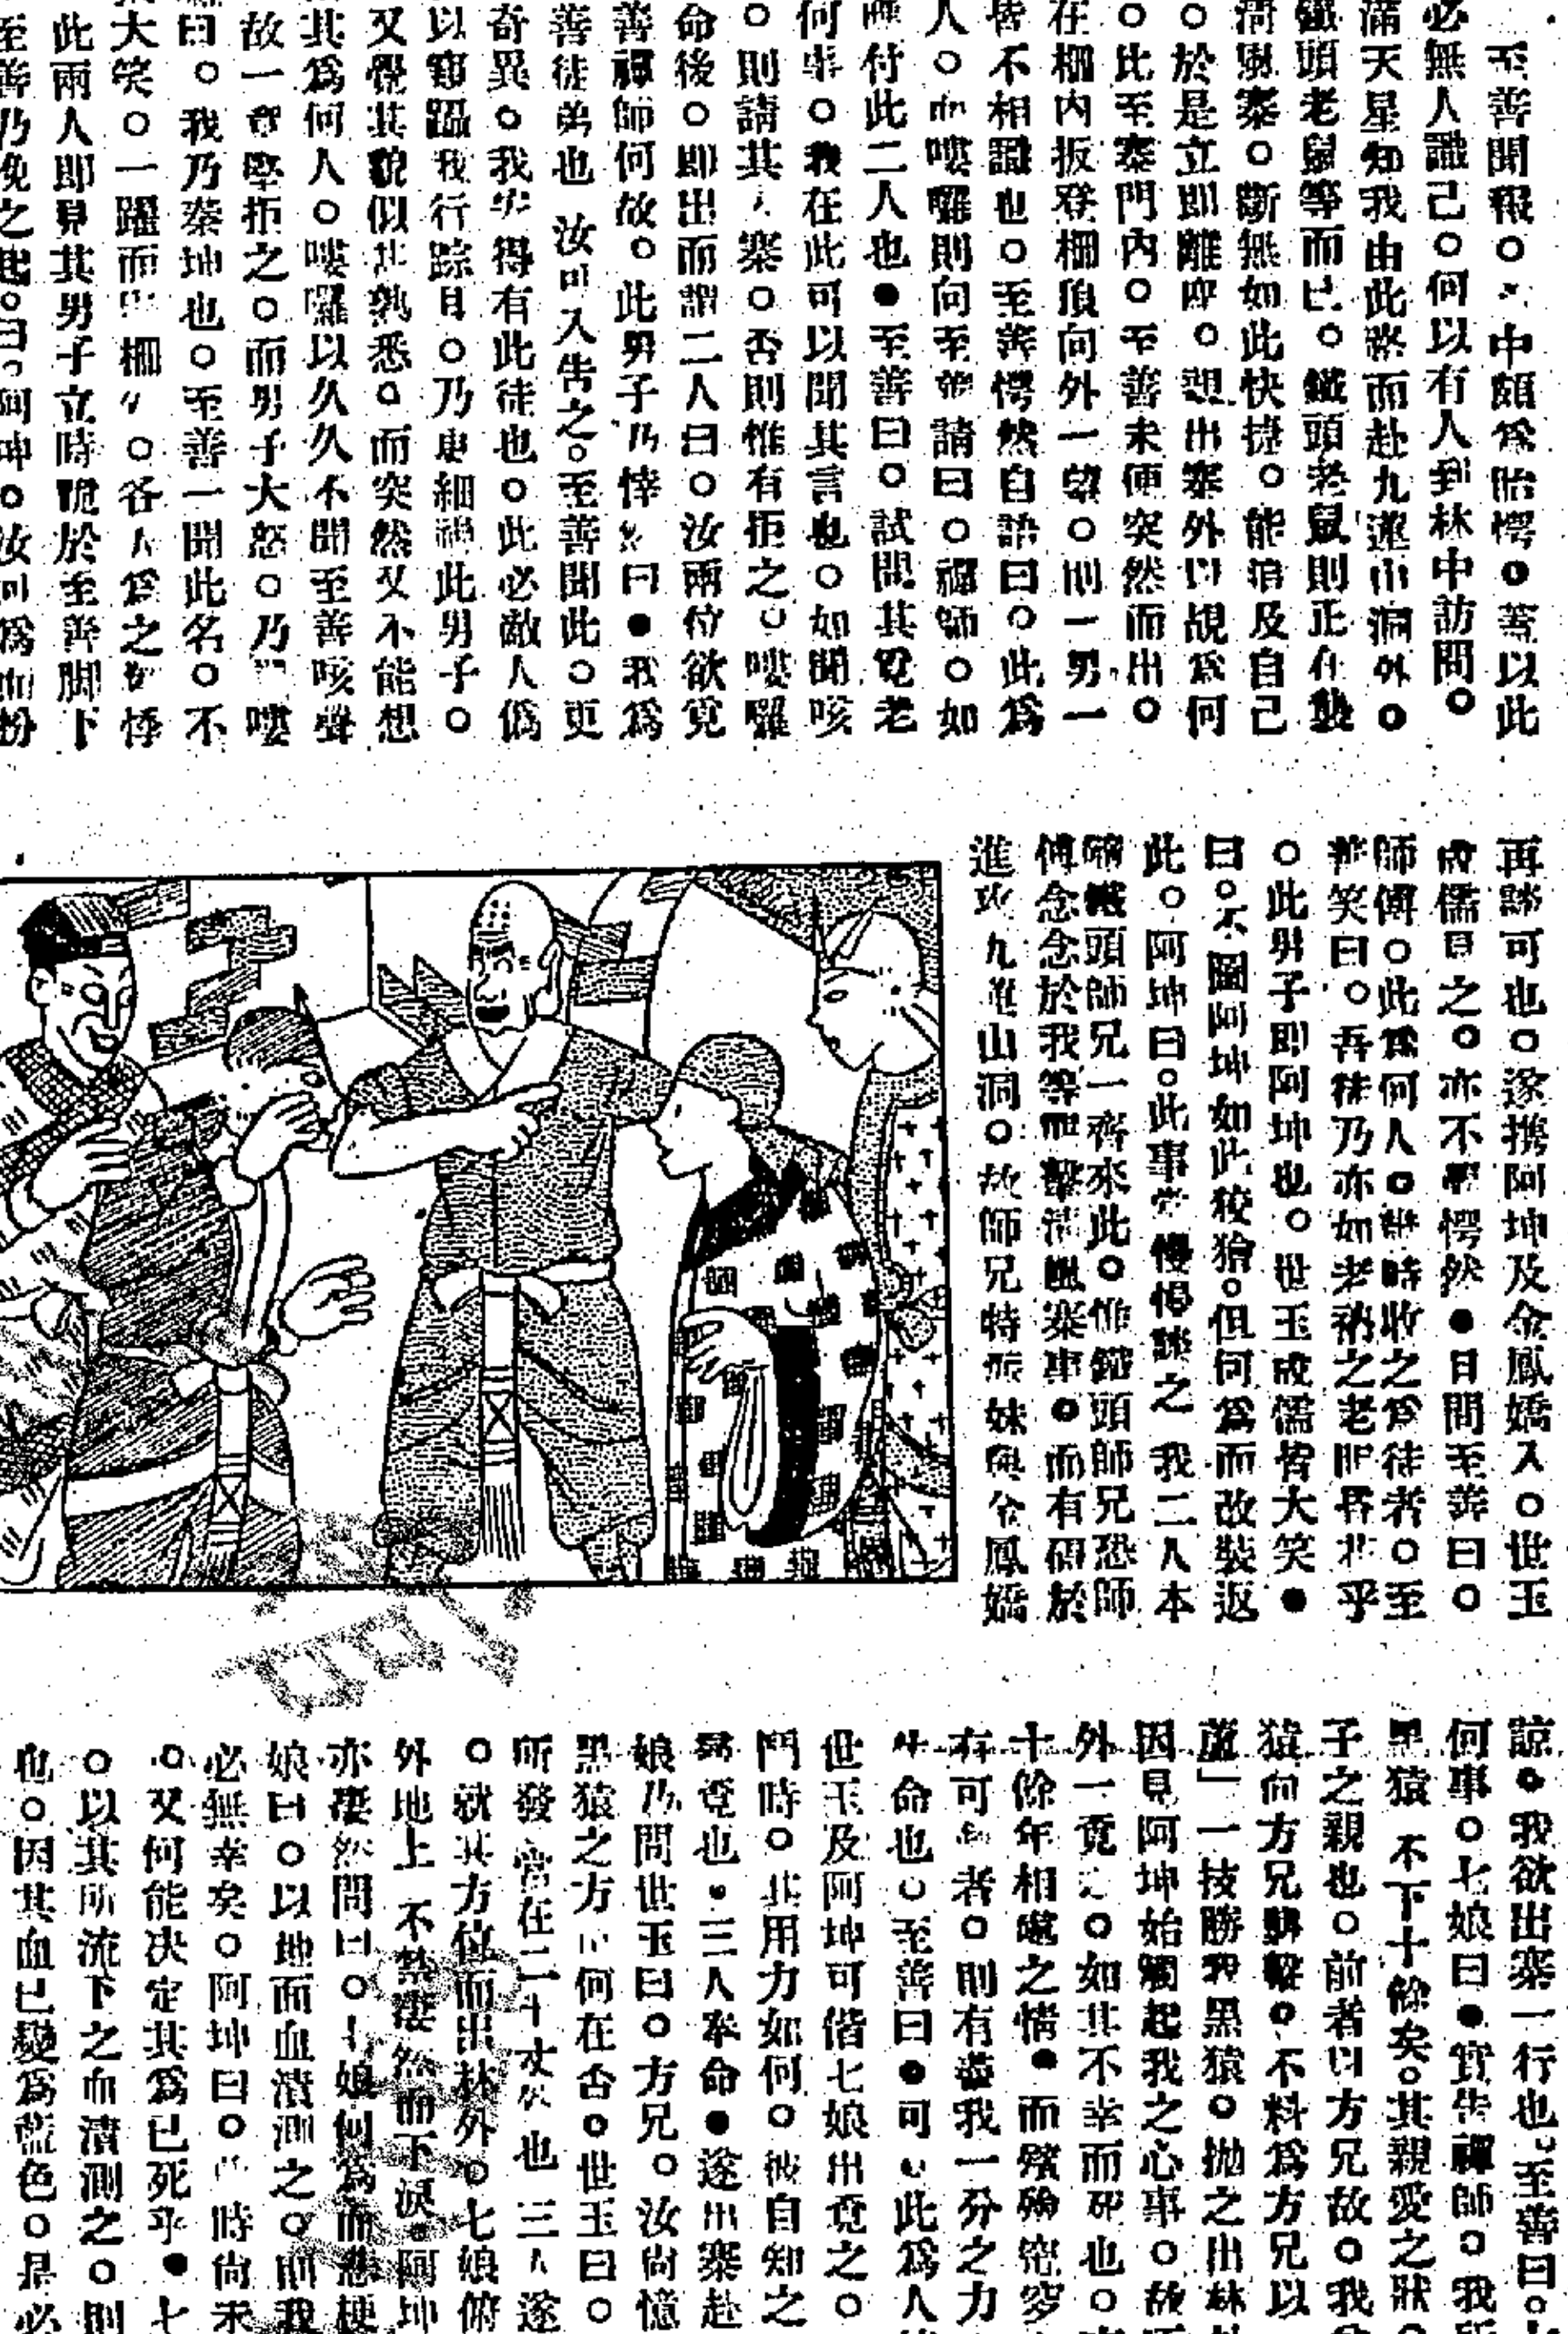 至善聞報。中頗為貽愕。蓋以此
必無人識己。何以有人到林中訪問。
滿天星知我由此路而赴九蓮山洞外。
鐵頭老鼠等而已。鐵頭老鼠則正在襲
清風寨。斷無如此快捷。能追及自己
。於是立即離座。親出寨外以覘為何
。比至寨門內。至善未便突然而出。
在柵內扳登柵頂向外一望。則一男一
皆不相識也。至善愕然自語曰。此為
人。而嘍囉則向至善請曰。禪師。如
付此二人也●至善曰。試問其覓老
何事。我在此可以聞其言也。如聞咳
。則請其寨。否則惟有拒之。嘍囉
命後。即出而謂二人曰。汝兩位欲覓
善禪師何故。此男子乃悻曰●我為
善徒弟也 汝可入告之。至善聞此。更
奇異。我安得有此徒也。此必敵人偽
以窺躡我行踪耳。乃更細視此男子。
又覺其貌似甚熟悉。而突然又不能想
其為何人。嘍囉以久久不聞至善咳聲
故一意堅拒之。而男子大怒。乃嘍
曰。我乃秦坤也。至善一聞此名。不
大笑。一躍而出柵。各人為之悸
此兩人即見其男子立時跪於至善脚下
至善乃挽之起。曰。阿坤。汝何為而扮
再談可也。遂携阿坤及金鳳嬌入。世玉
成儒見之。亦不禁愕然●且問至善曰。
師傅。此為何人。時收之為徒者。至
善笑曰。吾徒乃亦如老衲之老眼昏花乎
。此男子即阿坤也。世玉成儒皆大笑●
曰。不圖阿坤如此狡獪。但何為而改裝返
此。阿坤曰。此事當慢慢談之 我二人本
隨鐵頭師兄一齊來此。惟鐵頭師兄恐師
傅念念於我等襲擊清風寨事。而有碍於
進攻九蓮山洞。故師兄特派妹與金鳳嬌
諒。我欲出寨一行也。至善曰。
何事。七娘曰●實告禪師。我所
黑猿 不下十餘矣。其親愛之狀。
子之親也。前者以方兄故。我
猿向方兄襲擊。不料為方兄以
蘆」一技勝我黑猿。拋之出林
因見阿坤始觸起我之心事。故
外一覓之。如其不幸而死也。
十餘年相處之情●而殯殮窀穸
有可者。則有盡我一分之力
生命也。至善曰●可 此為人
世玉及阿坤可偕七娘出覓之。
鬥時。其用力如何。彼自知之
易覓也。三人奉命●遂出寨赴
娘乃問世玉曰。方兄。汝尚憶
黑猿之方向何在否。世玉曰。
所發當在二十丈外也 三人遂
。就其方位而出林外。七娘俯
外地上 不禁淒然而下淚。阿坤
亦淒然問曰。七娘何為而悲梗
娘曰。以地面血漬測之。則我
必無幸矣。阿坤曰。此時尚未
。又何能決定其為已死乎●七
。以其所流下之血漬測之。則
也。因其血已變為藍色。是必